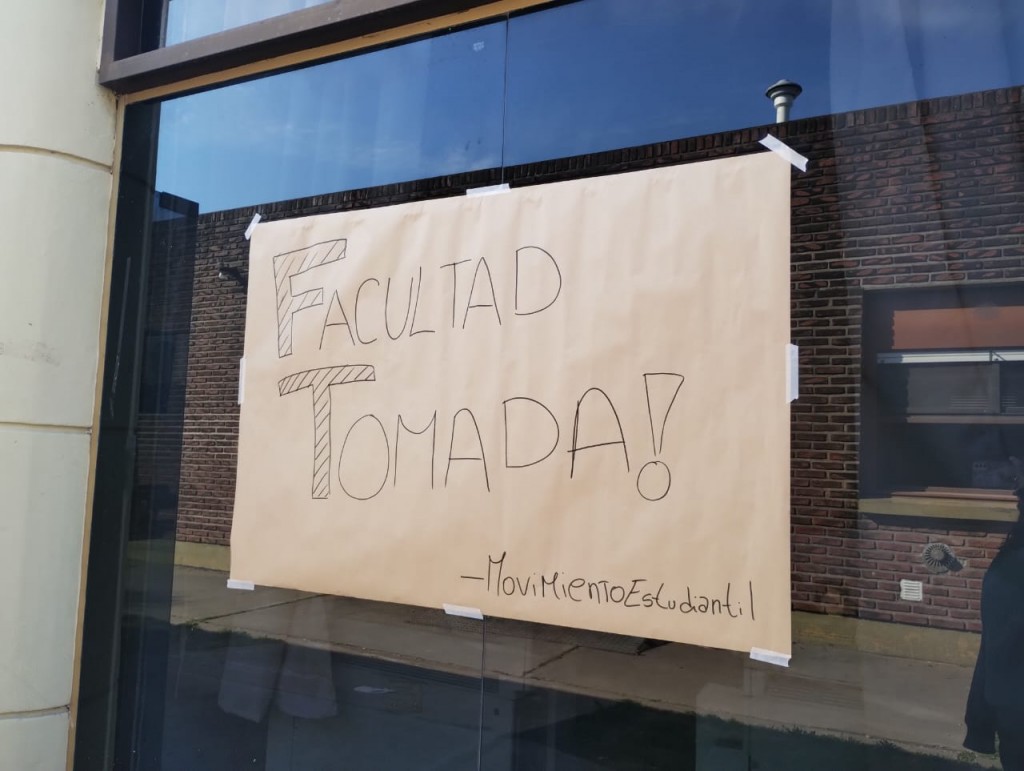 FACULTAD
TOMADA!
-MoviMientoEstudiantil